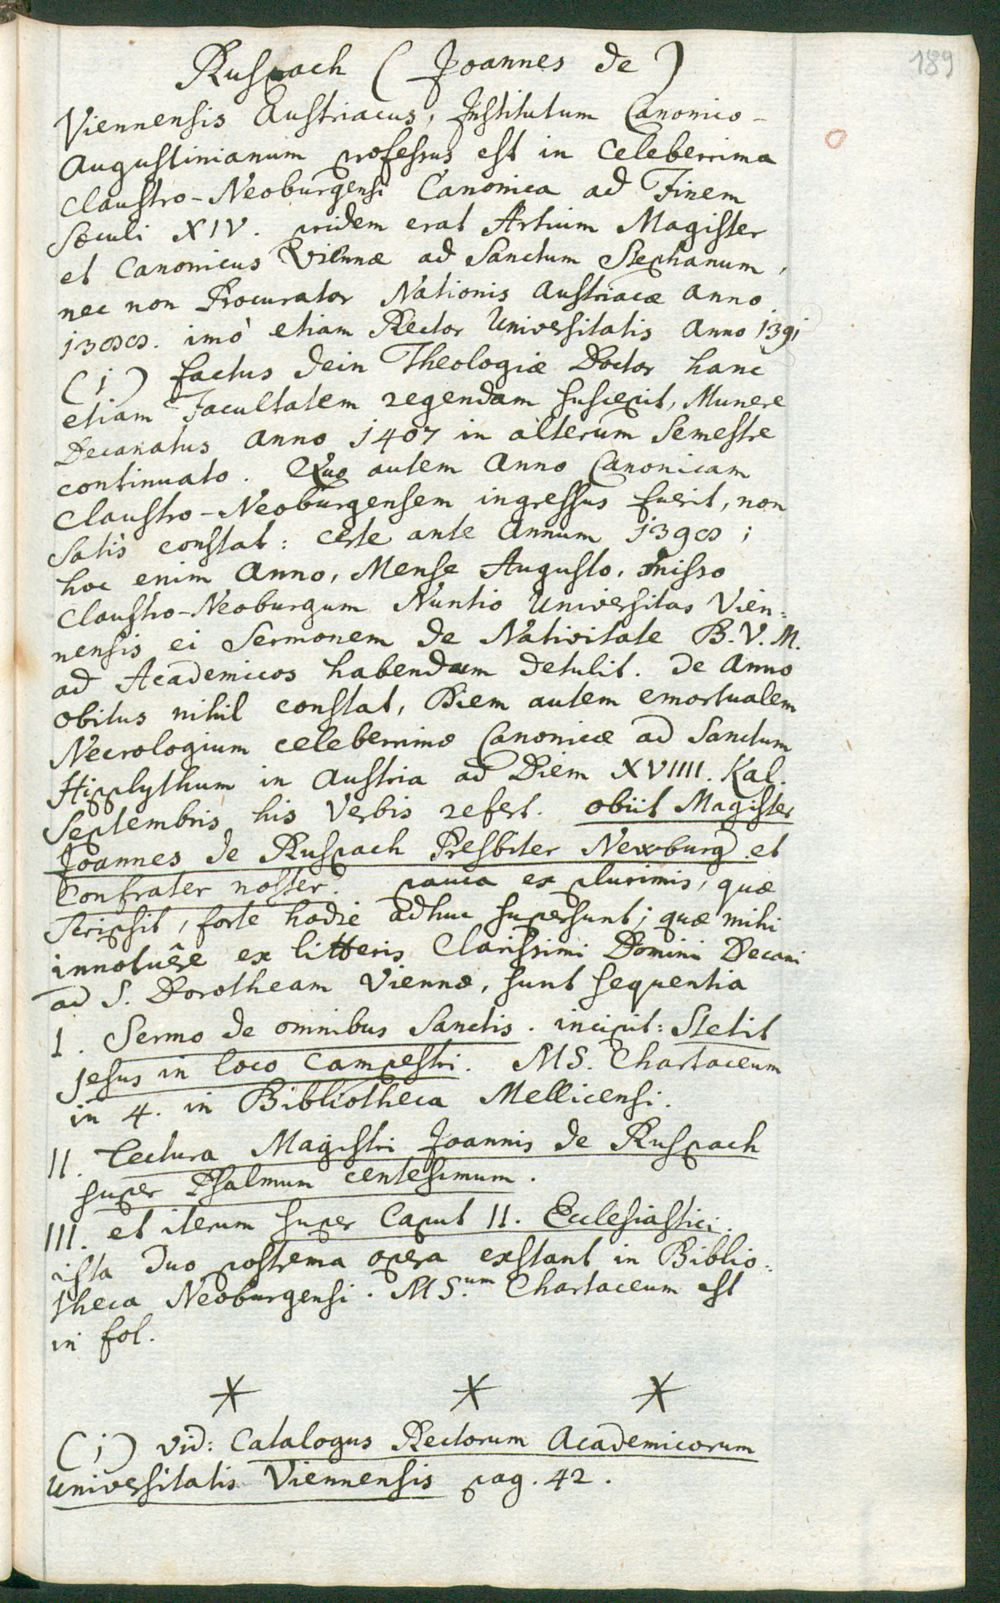 189
Ruspach (Joannes de)
Viennensis Austriacus, Institutum Canonico-
Augustinianum professus est in Celeberrima
Claustro-Neoburgensi Canonica ad Finem
Sæculi XIV. pridem erat Artium Magister
et Canonicus Viennæ ad Sanctum Stephanum,
nec non Procurator Nationis Austriacæ Anno
1388. imò etiam Rector Universitatis Anno 1391
(1) factus dein Theologiæ Doctor hanc
etiam Facultatem regendam suscepit, Munere
Decanatus Anno 1407 in alterum Semestre
continuato. Quo autem Anno Canonicam
Claustro-Neoburgensem ingressus fuerit, non
satis constat: certe ante Annum 1398;
hoc enim Anno, Mense Augusto, misso
Claustro-Neoburgum Nuntio Universitas Vien-
nensis ei Sermonem de Nativitate B.V.M.
ad Academicos habendum detulit. De Anno
obitus nihil constat, Diem autem emortualem
Necrologium celeberrimæ Canonicæ ad Sanctum
Hipplythum in Austria ad Diem XVIIII. Kal.
Septembris his Verbis refert. obiit Magister
Joannes de Ruspach Presbiter Newburg. et
Confrater noster. pauca ex plurimis, quæ
scripsit, forte hodie adhuc supersunt; quæ mihi
innotuêre ex litteris Clarissimi Domini Decani
ad S. Dorotheam Viennæ, sunt sequentia
I. Sermo de omnibus Sanctis. incipit: Stetit
Jesus in loco Campestri. MS. Chartaceum
in 4. in Bibliotheca Mellicensi.
II. Lectura Magistri Joannis de Ruspach
super Psalmum centesimum.
III. et iterum super Caput II. Ecclesiastici.
ista duo postrema opera exstant in Biblio-
theca Neoburgensi. MS.um Chartaceum est
in fol.
* * *
(1) vid: Catalogus Rectorum Academicorum
Universitatis Viennensis pag. 42.